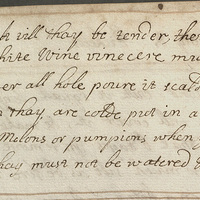 till thay be tender, the
hite Wine vinecere mu
er all hole poure it scald
n thay are colde put in a
Melons or pumpions when
thay must not be watered